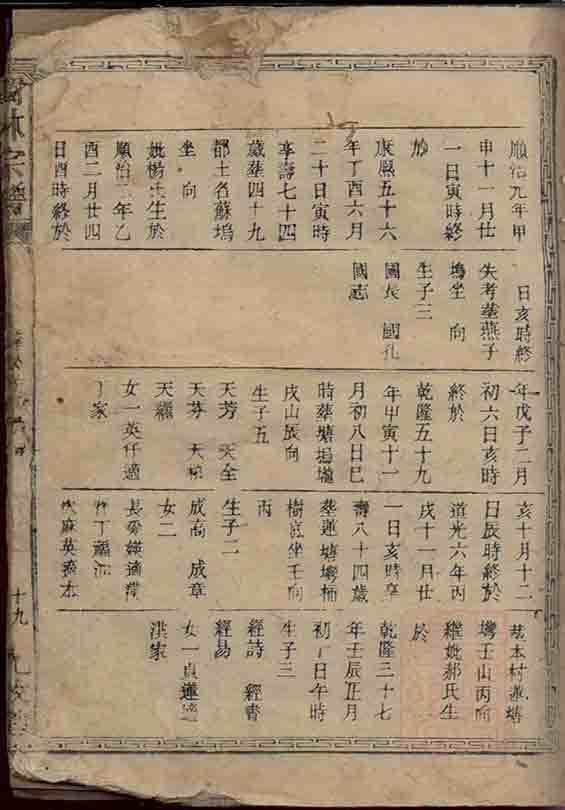 順治九年甲
申十一月廿
一日寅時終
於
康熈五十六
年丁酉六月
二十日寅時
享壽七十四
歲葬四十九
都土名蘇塢
坐 向
妣楊氏生於
順治二年乙
酉二月廿四
日酉時終於
日亥時終
失考葬燕子
塢坐 向
生子三
國長 國孔
國志
年戊子二月
初六日亥時
終於
乾隆五十九
年甲寅十一
月初八日巳
時葬塘塢壠
戌山辰向
生子五
天芳 天全
天芬
女一英仔適
丁家
亥十月十二
日辰時終於
道光六年丙
戌十一月廿
一日亥時享
壽八十四歲
葬蓮塘塆桶
樹底坐壬向
丙
生子二
成高 成章
女二
塆壬山丙向
繼妣郝氏生
於
乾隆三十七
年壬辰正月
初 日午時
生子三
經詩 經書
經易
女一貞蓮適
洪家
宗譜
十九